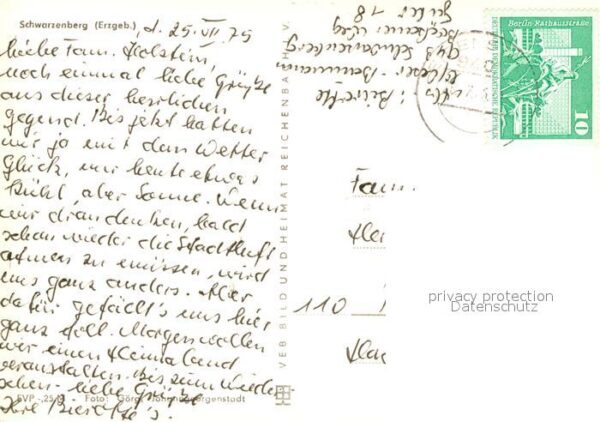 Schwarzenberg (Erzgeb.)
, d. 25. VII. 75
liebe Fam. Holstein,
noch einmal liebe Grüße
aus dieser herrlichen
Gegend. Bis jetzt hatten
wir ja mit dem Wetter
Glück, nur heute etwas
kühl, aber Sonne. Wenn
wir dran denken, bald
schon wieder die Stadtluft
atmen zu müssen, wird
uns ganz anders. Aber
dafür gefällt's uns hier
ganz toll. Morgen wollen
wir einen Heimabend
veranstalten. Bis zum Wieder-
sehen - liebe Grüße
Ihre
EVP -,25 M Foto: Görgi, Johanngeorgenstadt
VEB BILD UND HEIMAT REICHENBACH I. V.
943 Schwarzenberg
18
Berlin-Rathausstraße
DEUTSCHE DEMOKRATISCHE REPUBLIK
10
Fam.
110
privacy protection
Datenschutz